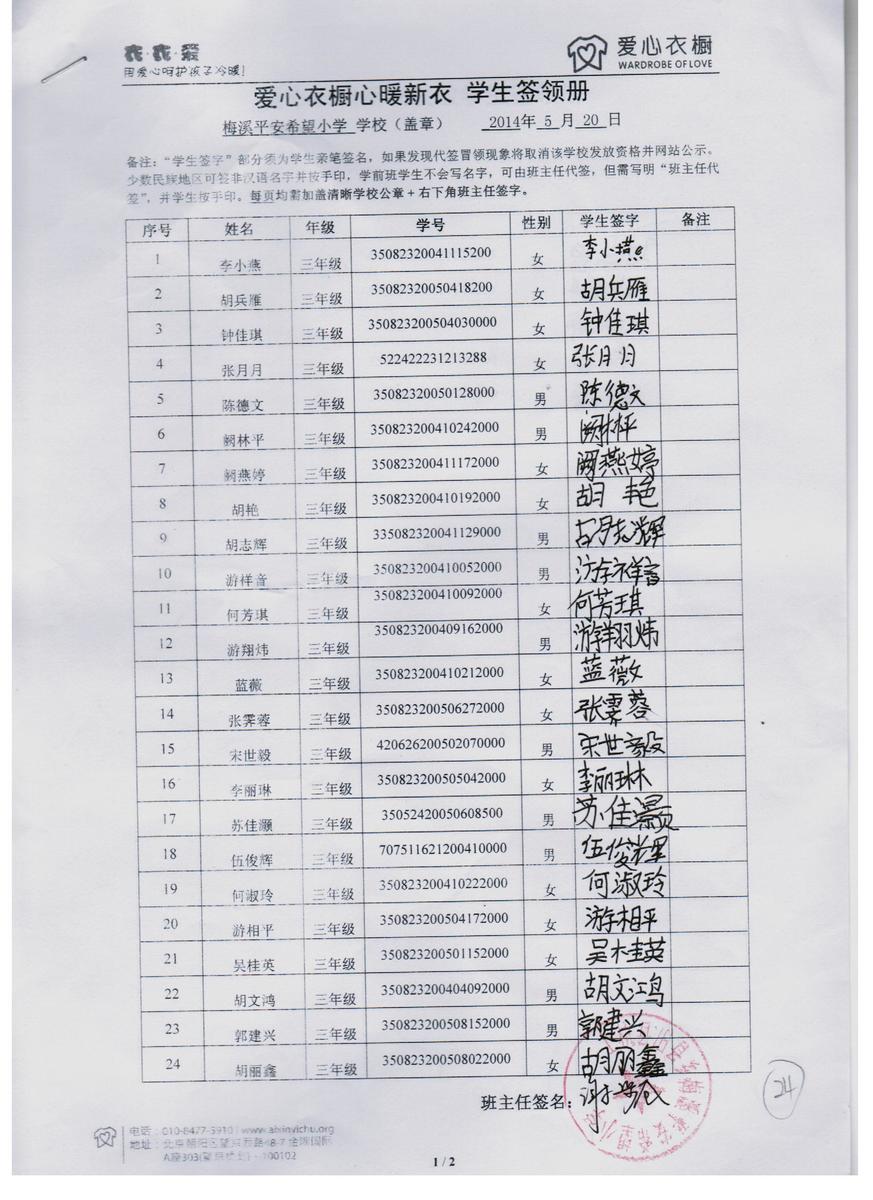 衣·衣·爱
用爱心呵护孩子冷暖!
爱心衣橱
WARDROBE OF LOVE
爱心衣橱心暖新衣 学生签领册
梅溪平安希望小学 学校（盖章） 2014年 5 月 20 日
备注：“学生签字”部分须为学生亲笔签名，如果发现代签冒领现象将取消该学校发放资格并网站公示。
少数民族地区可签非汉语名字并按手印，学前班学生不会写名字，可由班主任代签，但需写明“班主任代
签”，并学生按手印。每页均需加盖清晰学校公章+右下角班主任签字。
序号 姓名 年级 学号 性别 学生签字 备注
1 李小燕 三年级 35082320041115200 女 李小燕
2 胡兵雁 三年级 35082320050418200 女 胡兵雁
3 钟佳琪 三年级 350823200504030000 女 钟佳琪
4 张月月 三年级 522422231213288 女 张月月
5 陈德文 三年级 35082320050128000 男 陈德文
6 阙林平 三年级 350823200410242000 男 阙林平
7 阙燕婷 三年级 350823200411172000 女 阙燕婷
8 胡艳 三年级 350823200410192000 女 胡艳
9 胡志辉 三年级 335082320041129000 男 胡志辉
10 游祥音 三年级 350823200410052000 男 游祥音
11 何芳琪 三年级 350823200410092000 女 何芳琪
12 游翔炜 三年级 350823200409162000 男 游翔炜
13 蓝薇 三年级 350823200410212000 女 蓝薇
14 张霁蓉 三年级 350823200506272000 女 张霁蓉
15 宋世毅 三年级 420626200502070000 男 宋世毅
16 李丽琳 三年级 350823200505042000 女 李丽琳
17 苏佳灏 三年级 35052420050608500 男 苏佳灏
18 伍俊辉 三年级 707511621200410000 男 伍俊辉
19 何淑玲 三年级 350823200410222000 女 何淑玲
20 游相平 三年级 350823200504172000 女 游相平
21 吴桂英 三年级 350823200501152000 女 吴桂英
22 胡文鸿 三年级 350823200404092000 男 胡文鸿
23 郭建兴 三年级 350823200508152000 男 郭建兴
24 胡丽鑫 三年级 350823200508022000 女 胡丽鑫
班主任签名：
24
电话：010-8477-5910 www.aixinyichu.org
地址：北京朝阳区望京
A座303 100102
1 / 2